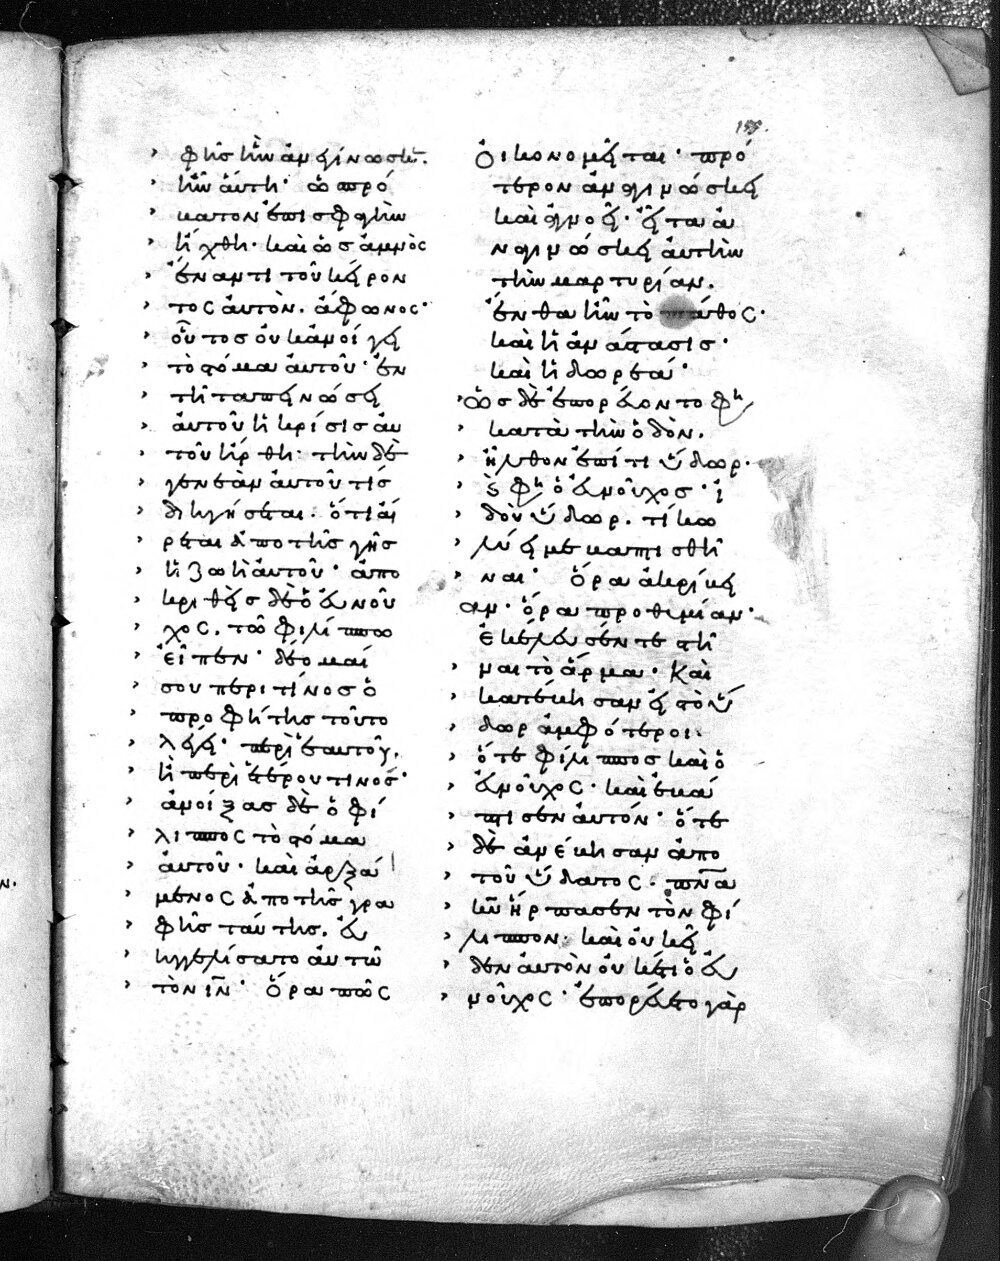 155.
φῆς ἣν ἀνεγίνωσκεν.
ἦν αὕτη· ὡς πρό
βατον ἐπὶ σφαγὴν
ἤχθη· καὶ ὡς ἀμνὸς
ἐναντι τοῦ κείρον
τος αὐτὸν. ἄφωνος·
οὕτος οὐκ ἀνοίγει
τὸ στόμα αὐτοῦ· ἐν
τῆ ταπεινώσει
αὐτοῦ ἡ κρίσις αὐ
τοῦ ἤρθη· τὴν δὲ
γενεὰν αὐτοῦ τίς
διηγήσεται· ὅτι αἴ
ρεται ἀπο τῆς γῆς
ἡ ζωὴ αὐτοῦ· ἀπο
κριθεὶς δὲ ὁ εὐνοῦ
χος. τῶ φιλίππω
εἶπεν· δέομαί
σου περι τίνος ὁ
προφήτης τοῦτο
λέγει· περὶ ἑαυτοῦ.
ἢ περὶ ἑτέρου τινός·
ἀνοίξας δὲ ὁ φί
λιππος τὸ στόμα
αὐτοῦ· καὶ ἀρξά
μενος ἀπο τῆς γρα
φῆς ταύτης. εὐ
ηγγελίσατο αὐτῶ
τὸν ιν· Ὅρα πῶς
Οἰκονομεῖται· πρό
τερον ἀναγινώσκει
καὶ ἀγνοεῖ· εἶτα ἀ
ναγινώσκει αὐτὴν
τὴν μαρτυρίαν.
ἔνθα ἦν τὸ πάθος·
καὶ ἡ ἀνάστασις·
καὶ ἡ δωρεά·
Ὡς δὲ ἐπορεύοντο φη
κατὰ τὴν ὁδὸν.
ἦλθον ἐπί τι ὕδωρ.
ϗ φη ὁ εὐνοῦχος· ἰ
δοὺ ὕδωρ. τί κω
λύει με βαπτισθῆ
ναι· ὅρα ἀκρίβει
αν· ὅρα προθυμίαν·
Ἐκέλευσέν τε στῆ
ναι τὸ ἅρμα· Καὶ
κατέβησαν εἰς τὸ ὕ
δωρ ἀμφότεροι.
ὅτε φίλιππος καὶ ὁ
εὐνοῦχος· καὶ ἐβά
πτισεν αὐτόν· ὅτε
δὲ ἀνέβησαν ἀπο
τοῦ ὕδατος. πνα
κυ ἥρπασεν τὸν φί
λιππον· καὶ οὐκ εἶ
δεν αὐτὸν οὐκέτι ὁ εὐ
νοῦχος· ἐπορεύετο γὰρ